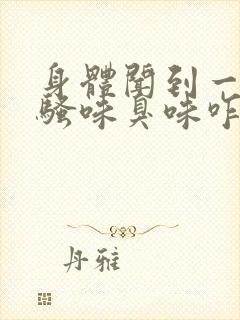 身體聞到一
騷味臭味咋
丹雅